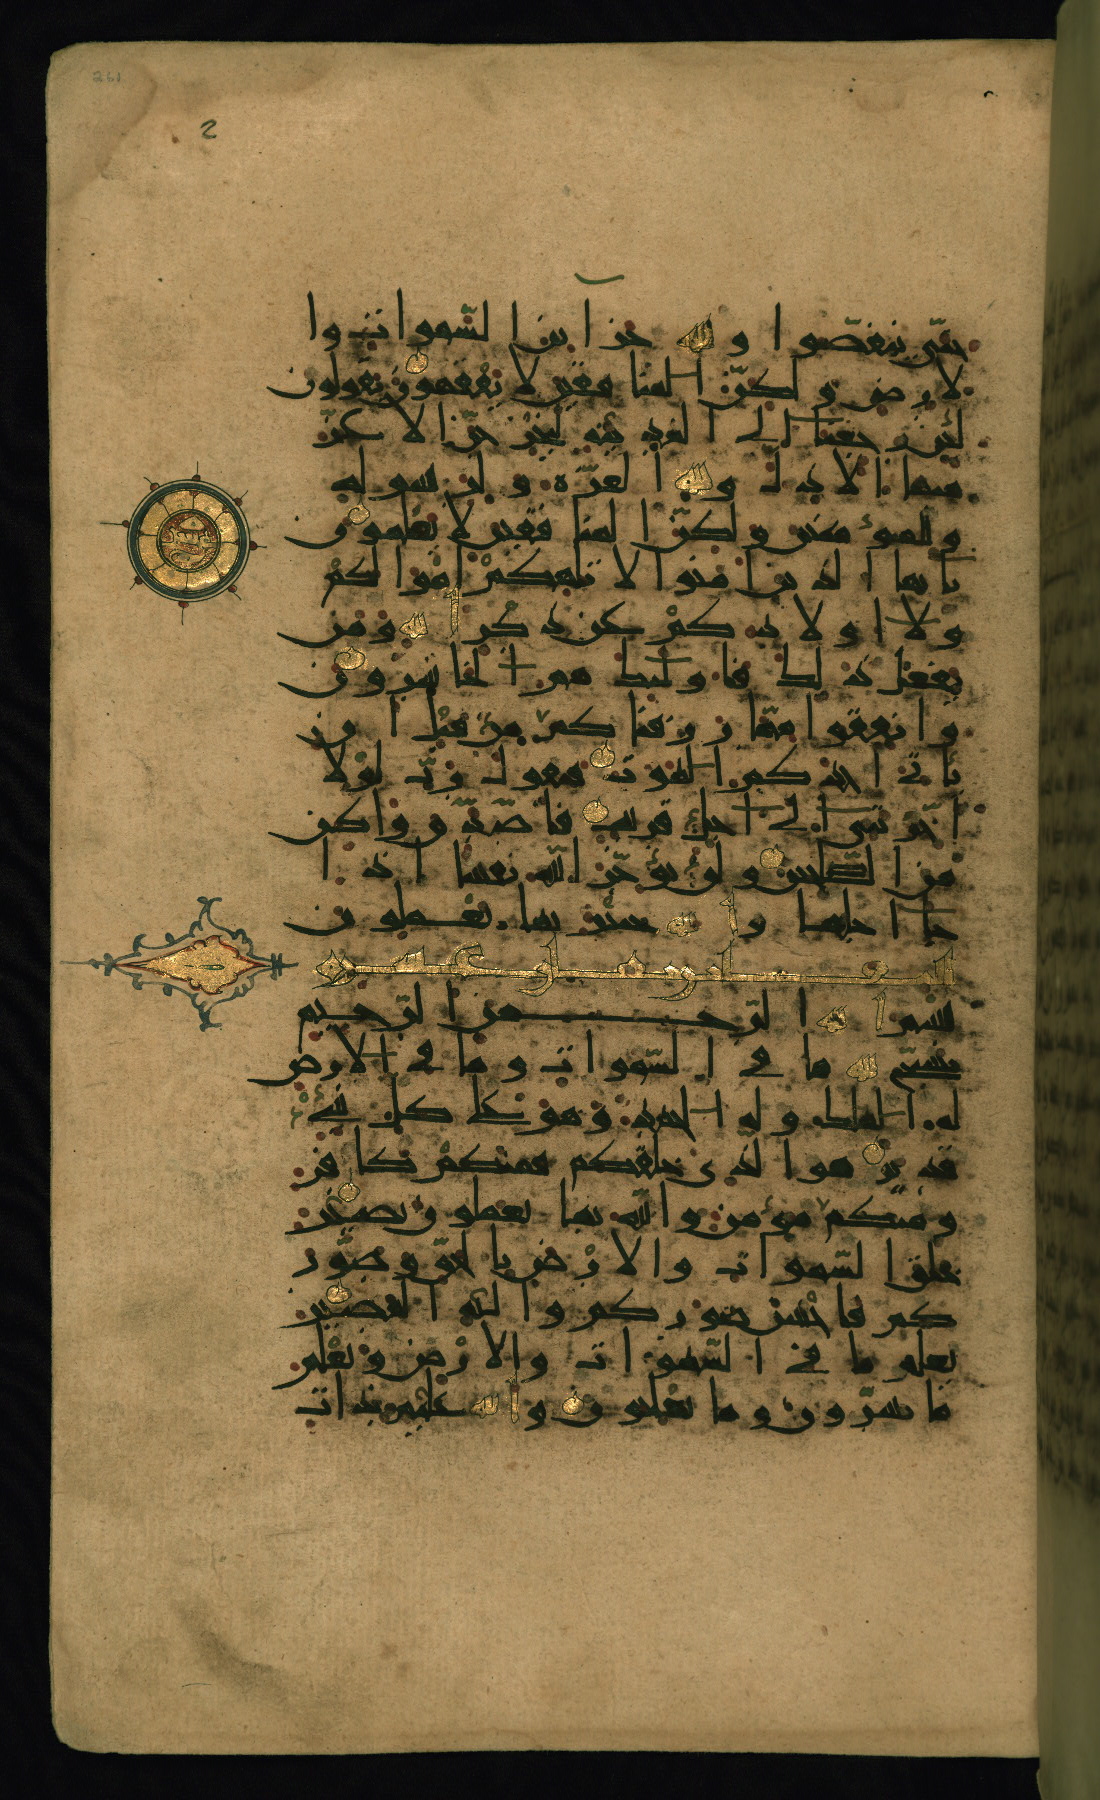 261
2
حتّى ينفضّوا ولله خزاين السّموات وا
لارض ولكنّ المنافقين لا يفقهون يقولون
لئن رجعنا الى المدينه ليخرجنّ الاعزّ
منها الاذلّ ولله العزّة ولرسوله
وللمؤمنين ولكنّ المنافقين لا يعلمون
يايها الذين امنوا لا تلهكم اموالكم
ولا اولادكم عن ذكر الله ومن
يفعل ذلك فاولئك هم الخاسرون
وانفقوا ممّا رزقناكم من قبل ان
ياتي احدكم الموت فيقول ربّ لولا
اخّرتني الى اجل قريب فاصّدّق واكن
من الصّلحين ولن يؤخّر الله نفسا اذا
جا اجلها والله خبير بما تعملون
بسم الله الرّحمن الرّحيم
يسبّح لله ما في السّموات وما في الارض
له الملك وله الحمد وهو على كل شي
قدير هو الذي خلقكم فمنكم كافر
ومنكم مؤمن والله بما تعملون بصير
خلق السّموات والارض بالحقّ وصوّر
كم فاحسن صوركم واليه المصير
يعلم ما في السّموات والارض ويعلم
ما تسرّون وما تعلنون والله عليم بذات